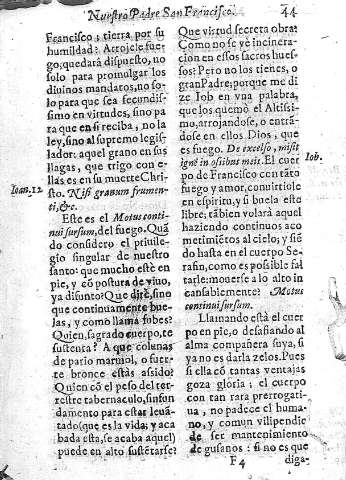 Nuestro Padre San Francisco. 44
Francisco; tierra por su
humildad? Arrojele fue-
go, quedará dispuesto, no
solo para promulgar los
diuinos mandatos, no so-
lo para que sea fecundis-
simo en virtudes, sino pa
ra que en si reciba, no la
ley, sino al supremo legis-
lador: aquel grano en sus
llagas, que trigo con e-
llas es en su muerte Chri-
sto. Nisi granum frumen-
ti, &c.
Ioan. 12
Este es el Motus conti
nui sursum, del fuego. Quā
do considero el priuile-
gio singular de nuestro
santo: que mucho estè en
pie, y cō postura de viuo,
ya difunto? Que dirè, sino
que continuamente bue-
las, y como llama subes?
Quien, sagrado cuerpo, te
sustenta? A que colunas
de pario marmol, o fuer-
te bronce estàs asido?
Quien cō el peso del ter-
restre tabernaculo, sin fun
damento para estar leuā
tado (que es la vida; y aca
bada esta, se acaba aquel)
puede en alto sustētarse?
Que virtud secreta obra?
Como no se vè incinera-
cion en essos sacros hues-
sos? Pero no los tienes, o
gran Padre; porque me di
ze Iob en vna palabra,
que los quemò el Altissi-
mo, arrojandose, o entrā-
dose en ellos Dios, que
es fuego. De excelso, misit
ignē in ossibus meis. El cuer
Iob.
po de Francisco cen tāto
fuego y amor, conuirtiole
en espiritu, y si buela este
libre; tābien volarà aquel
haziendo continuos aco
metimiētos al cielo; y siē
do hasta en el cuerpo Se-
rafin, como es posible fal
tarle: mouerse a lo alto in
cansablemente? Motus
continui sursum.
Llamando està el cuer
po en pie, o desafiando al
alma compañera suya, si
ya no es darla zelos. Pues
si ella cō tantas ventajas
goza gloria; el cuerpo
con tan rara prerrogati-
ua, no padece el huma-
no, y comun vilipendio
de ser mantenimiento
de gusanos: si no es que
F 4 diga-